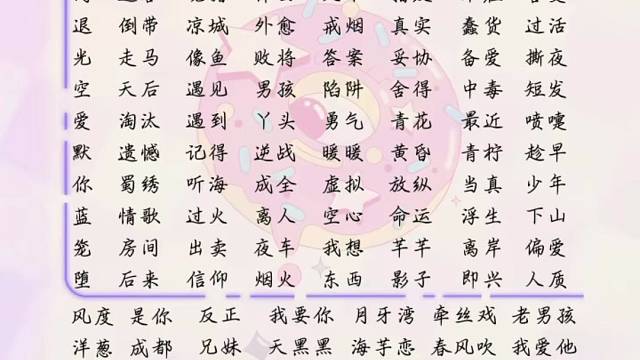 退 倒带 凉城 外愈 戒烟 真实 蠢货 过活
光 走马 像鱼 败将 答案 妥协 备爱 撕夜
空 天后 遇见 男孩 陷阱 舍得 中毒 短发
爱 淘汰 遇到 丫头 勇气 青花 最近 喷嚏
默 遗憾 记得 逆战 暖暖 黄昏 青柠 趁早
你 蜀绣 听海 成全 虚拟 放纵 当真 少年
蓝 情歌 过火 离人 空心 命运 浮生 下山
笼 房间 出卖 夜车 我想 芊芊 离岸 偏爱
堕 后来 信仰 烟火 东西 影子 即兴 人质
风度 是你 反正 我要你 月牙湾 牵丝戏 老男孩
洋葱 成都 兄妹 天黑黑 海芋恋 春风吹 我爱他